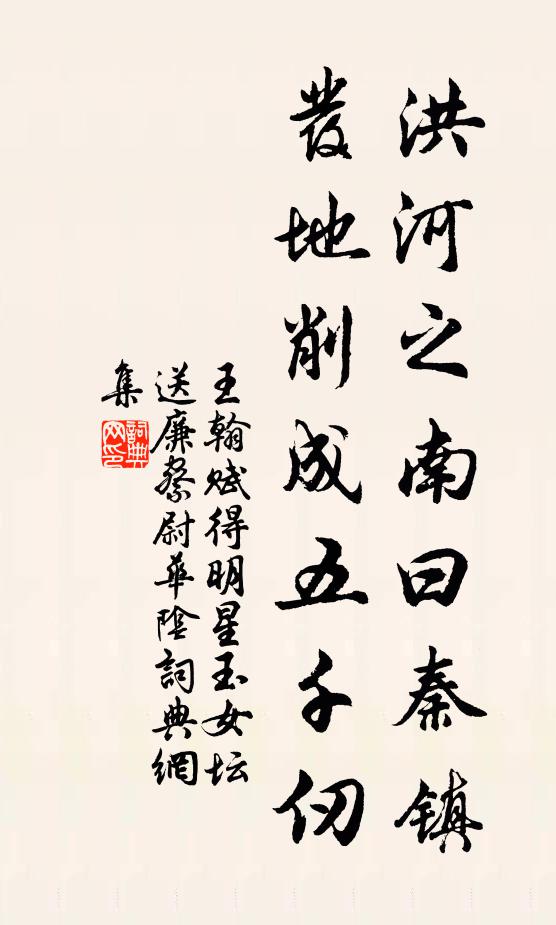 洪河之南曰秦镇
發地削成五千仞
王翰赋得明星玉女坛
送廉察尉華陰詞典網
集
詞典
网印